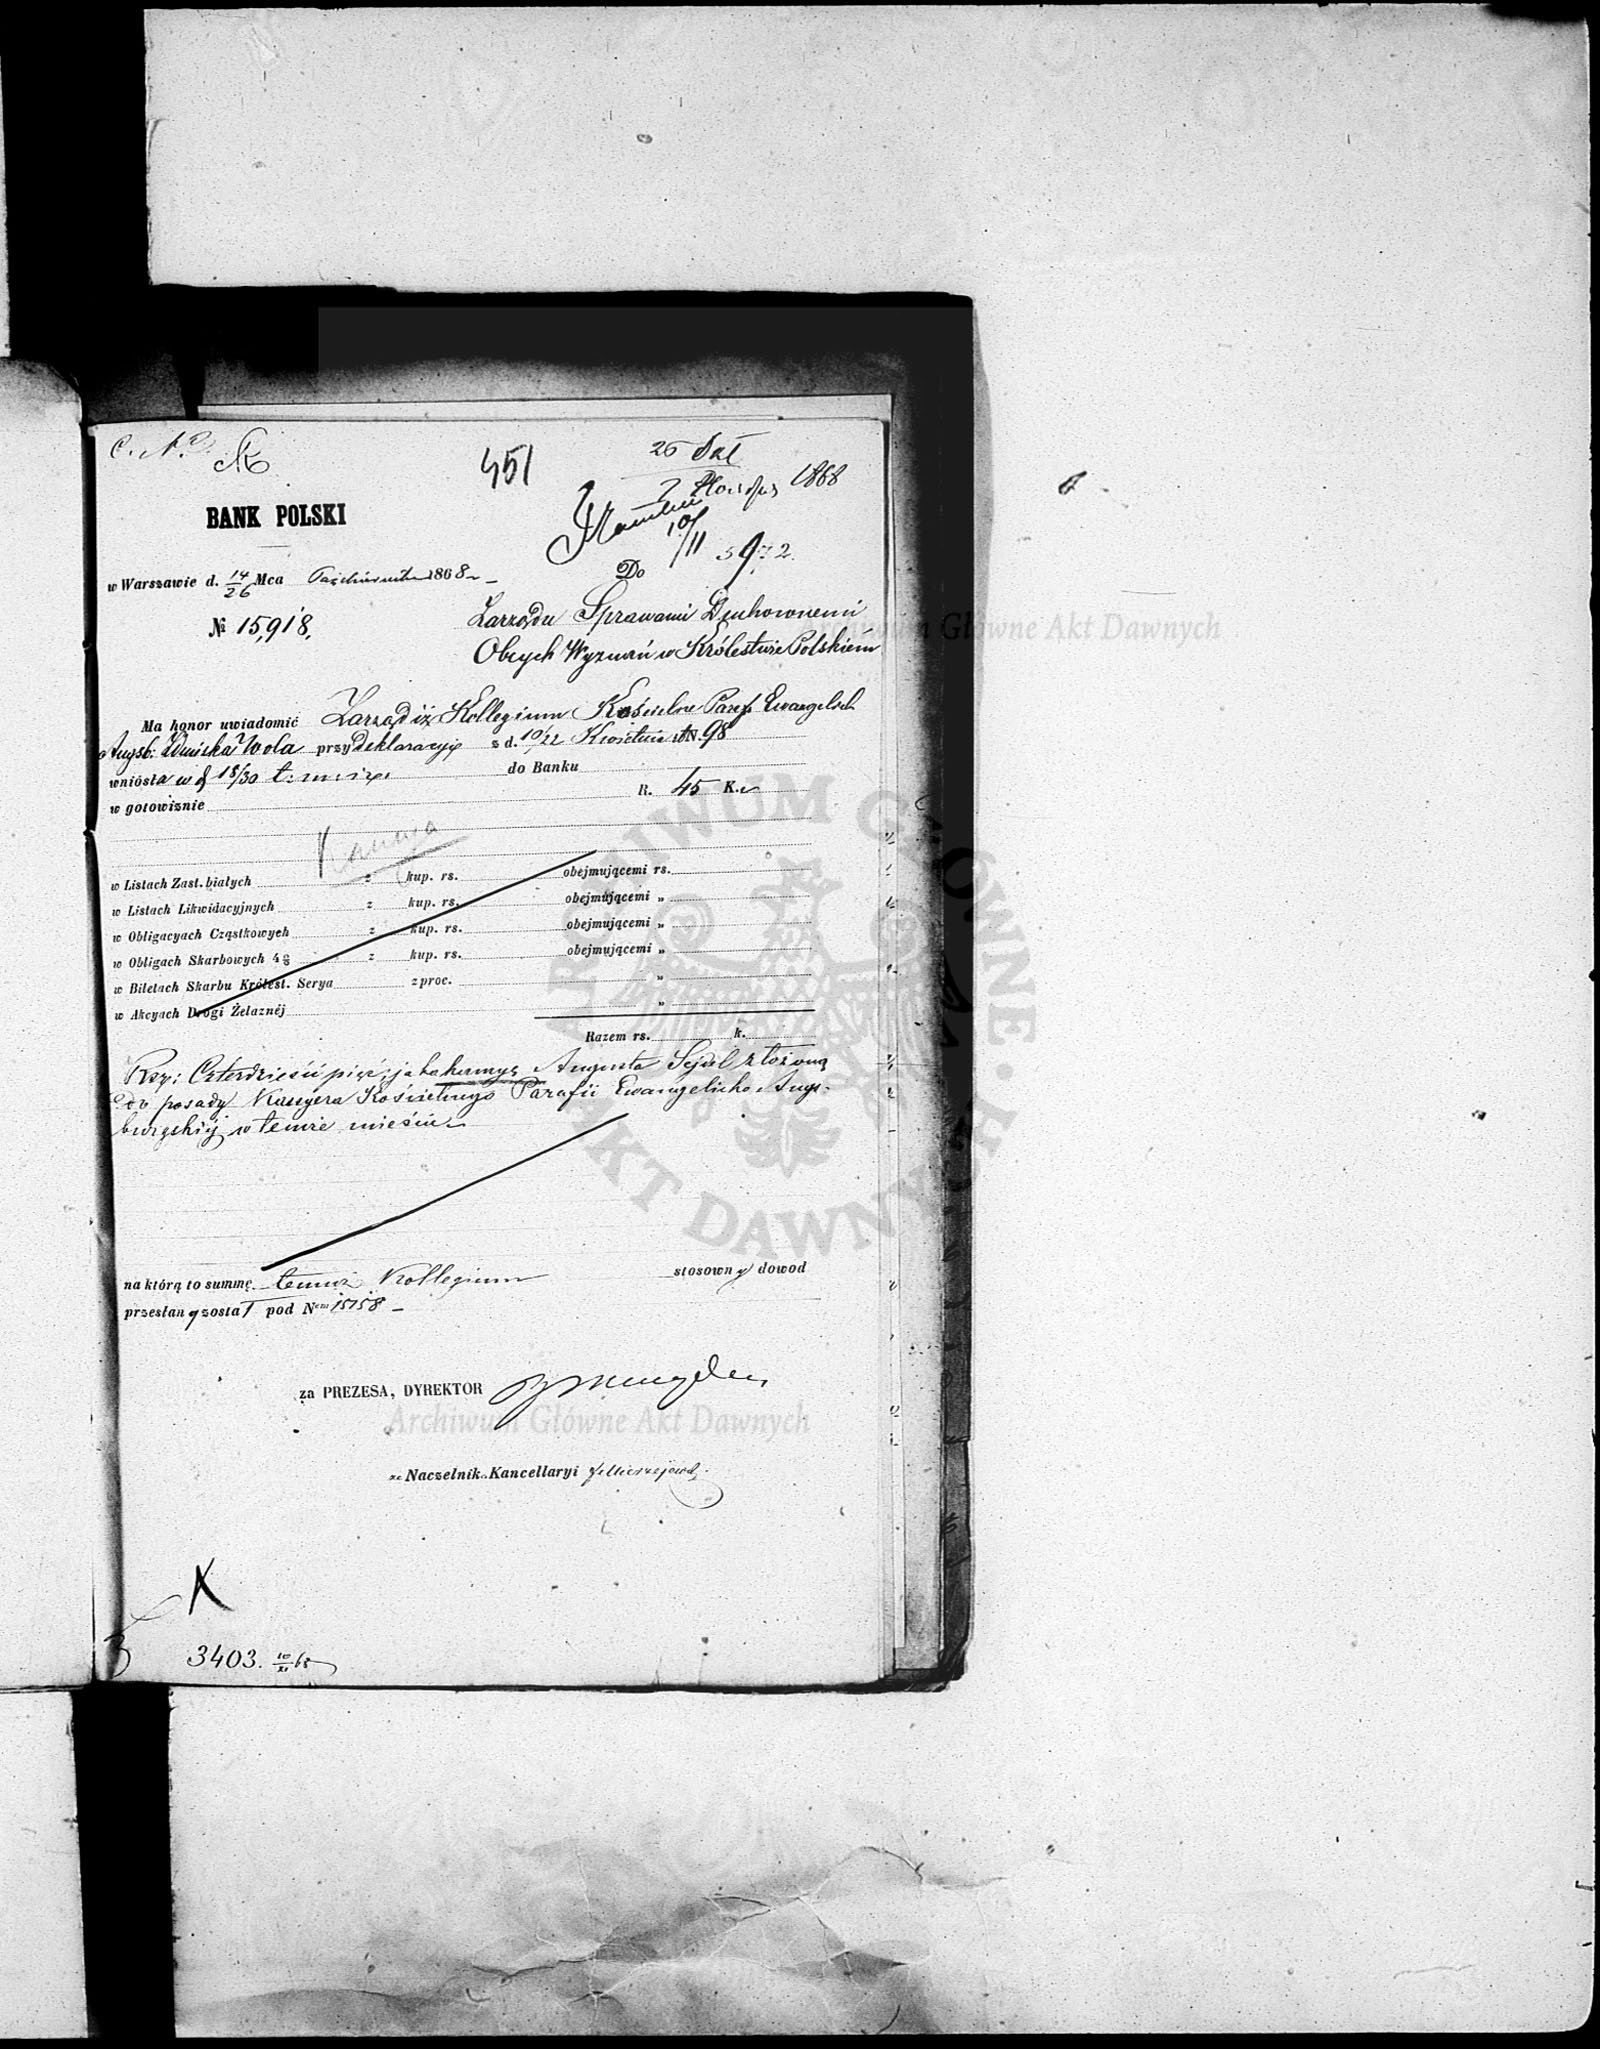 451
1868
BANK POLSKI
10/11 5972.
w Warszawie d. 14/26 Mca Października 1868
Do
№ 15,918.
Zarządu Sprawami Duchownemi
Obcych Wyznań w Królestwie Polskiém
Ma honor uwiadomić Zarząd iż Kollegium Kościelne Paraf Ewangelick
Augsb: Zduńska Wola przy deklaracyi z d. 10/22 Kwietnia N. 98
wniosła w d 18/30 t. m. i r. do Banku
w gotowiznie R. 45 K.
Kaucya
w Listach Zast. białych z kup. rs. obejmującemi rs.
w Listach Likwidacyjnych z kup. rs. obejmującemi „
w Obligacyach Cząstkowych z kup. rs. obejmującemi „
w Obligach Skarbowych 4% z kup. rs. obejmującemi „
w Biletach Skarbu Królest. Serya z proc. „
w Akcyach Drogi Żelaznéj „
Razem rs. k.
Rsr: Czterdzieści pięć, jako kaucyę Augusta Sejdel złożoną
do posady Kassyera Kościelnego Parafii Ewangelicko Augs-
burgskiéj w temże mieście
na którą to summę temuż Kollegium stosowny dowod
przesłany został pod Nem 15158
za PREZESA, DYREKTOR
Archiwum Główne Akt Dawnych
Naczelnik Kancellaryi
3403. 10/XI 68
Archiwum Główne Akt Dawnych
ARCHIWUM GŁÓWNE AKT DAWNYCH